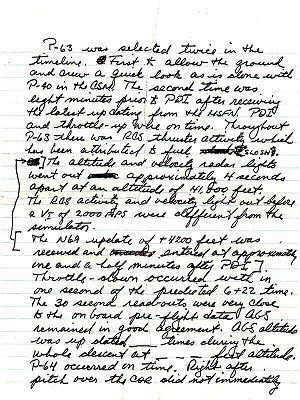 P-63 was selected twice in the
timeline. First to allow the ground
and crew a quick look as is done with
P-40 in the CSM. The second time was
eight minutes prior to PDI after receiving
the latest updating from the MSFN. PDI
and throttle-up were on time. Throughout
P-63 there was RCS thruster activity which
has been attributed to fuel slosh.
The altitude and velocity radar lights
went out approximately 4 seconds
apart at an altitude of 41,900 feet.
The RCS activity and velocity light out before
a VI of 2000 FPS were different from the
simulator.
The N69 update of +4200 feet was
received and entered at approximately
one and a half minutes after PDI.
Throttle-down occurred with in
one second of the predicted 6+22 time.
The 30 second readouts were very close
to the on board pre-flight data. AGS
remained in good agreement. AGS altitude
was up dated ___ times during the
whole descent at _ _ _ feet altitude.
P-64 occurred on time. Right after
pitch over the CDR did not immediately